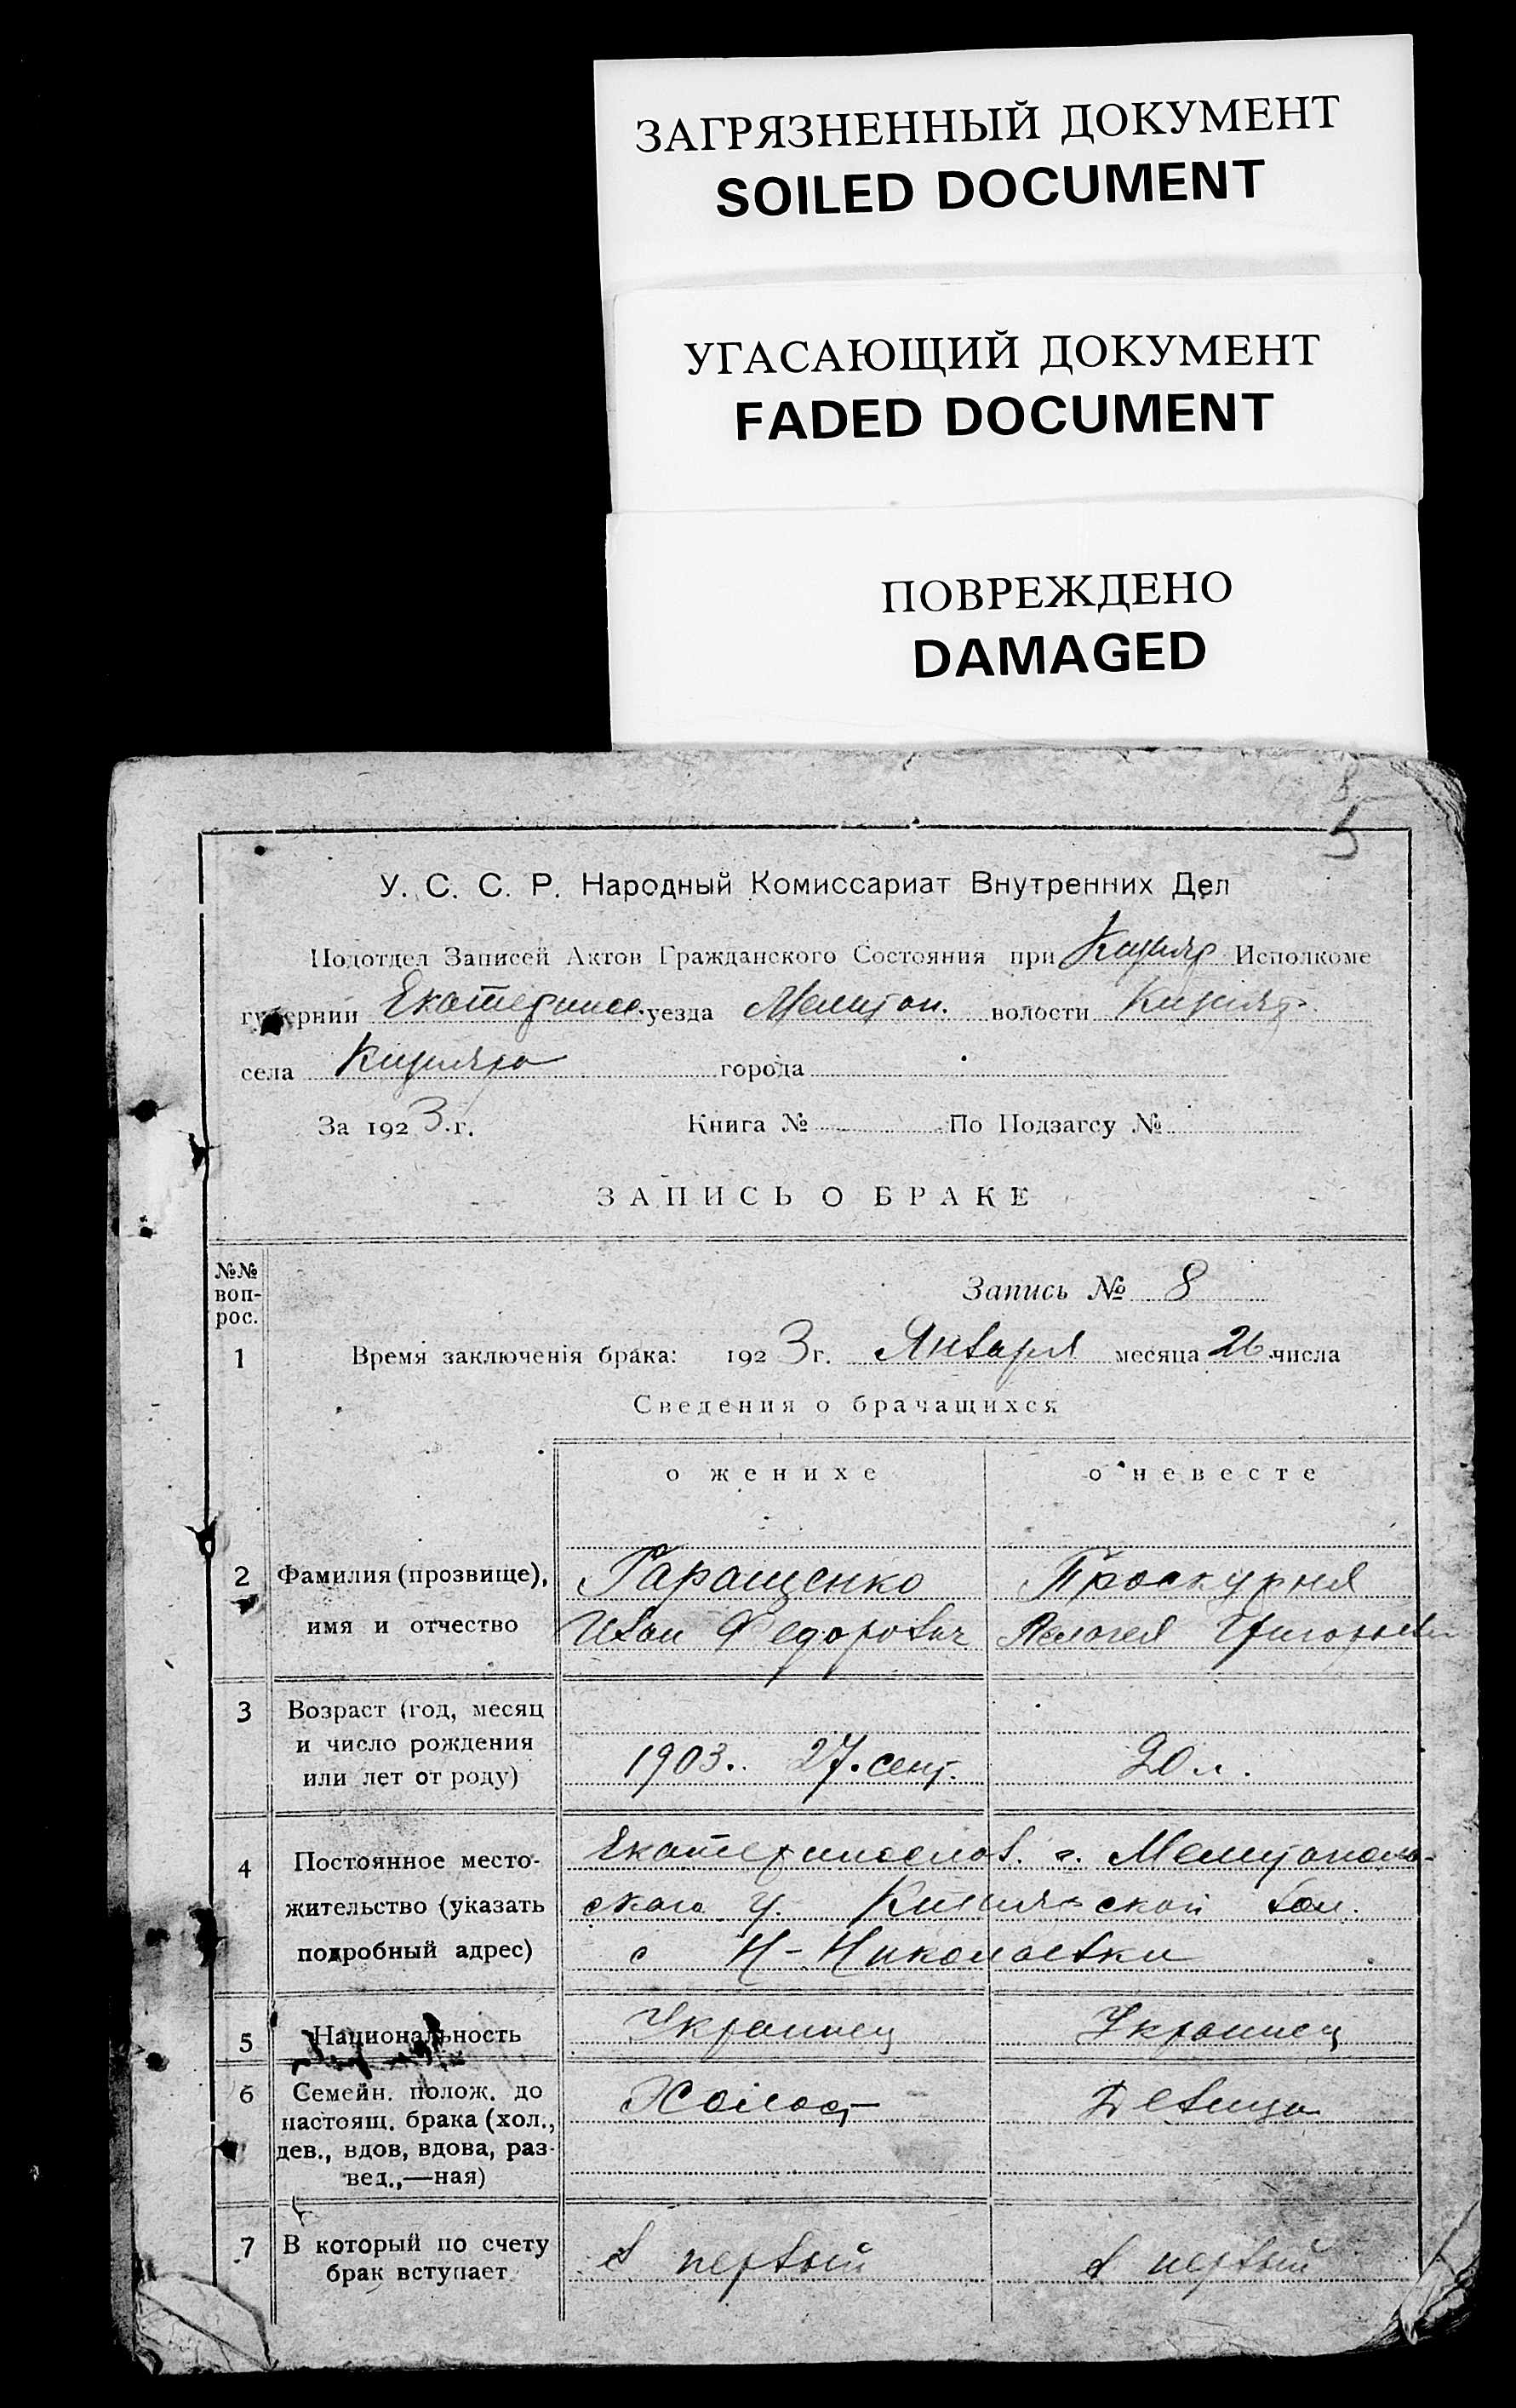 ЗАГРЯЗНЕННЫЙ ДОКУМЕНТ
SOILED DOCUMENT
УГАСАЮЩИЙ ДОКУМЕНТ
FADED DOCUMENT
ПОВРЕЖДЕНО
DAMAGED
8
5
У. С. С. Р. Народный Комиссариат Внутренних Дел
Подотдел Записей Актов Гражданского Состояния при Кизияр Исполкоме
губернии Екатеринос. уезда Мелитоп. волости Кизияр.
села Кизияра города
За 1923.г. Книга № По Подзагсу №
ЗАПИСЬ О БРАКЕ
№№ вопрос.
Запись № 8
1 Время заключенія брака: 1923г. Января месяца 26 числа
Сведения о брачащихся
о женихе о невесте
2 Фамилия (прозвище), Гаращенко Проскурня
имя и отчество Иван Федорович Пелагея Григорьев
3 Возраст (год, месяц
и число рождения
или лет от роду) 1903. 27. сент. 20 л.
4 Постоянное место- Екатеринослав. г. Мелитополь-
жительство (указать ского у. Кизиярской вол.
подробный адрес) с Н-Николаевки
5 Национальность Украинец Украинец
6 Семейн. полож. до Холост Девица
настоящ. брака (хол.,
дев., вдов, вдова, раз-
вед.,—ная)
7 В который по счету
брак вступает в первый в первый